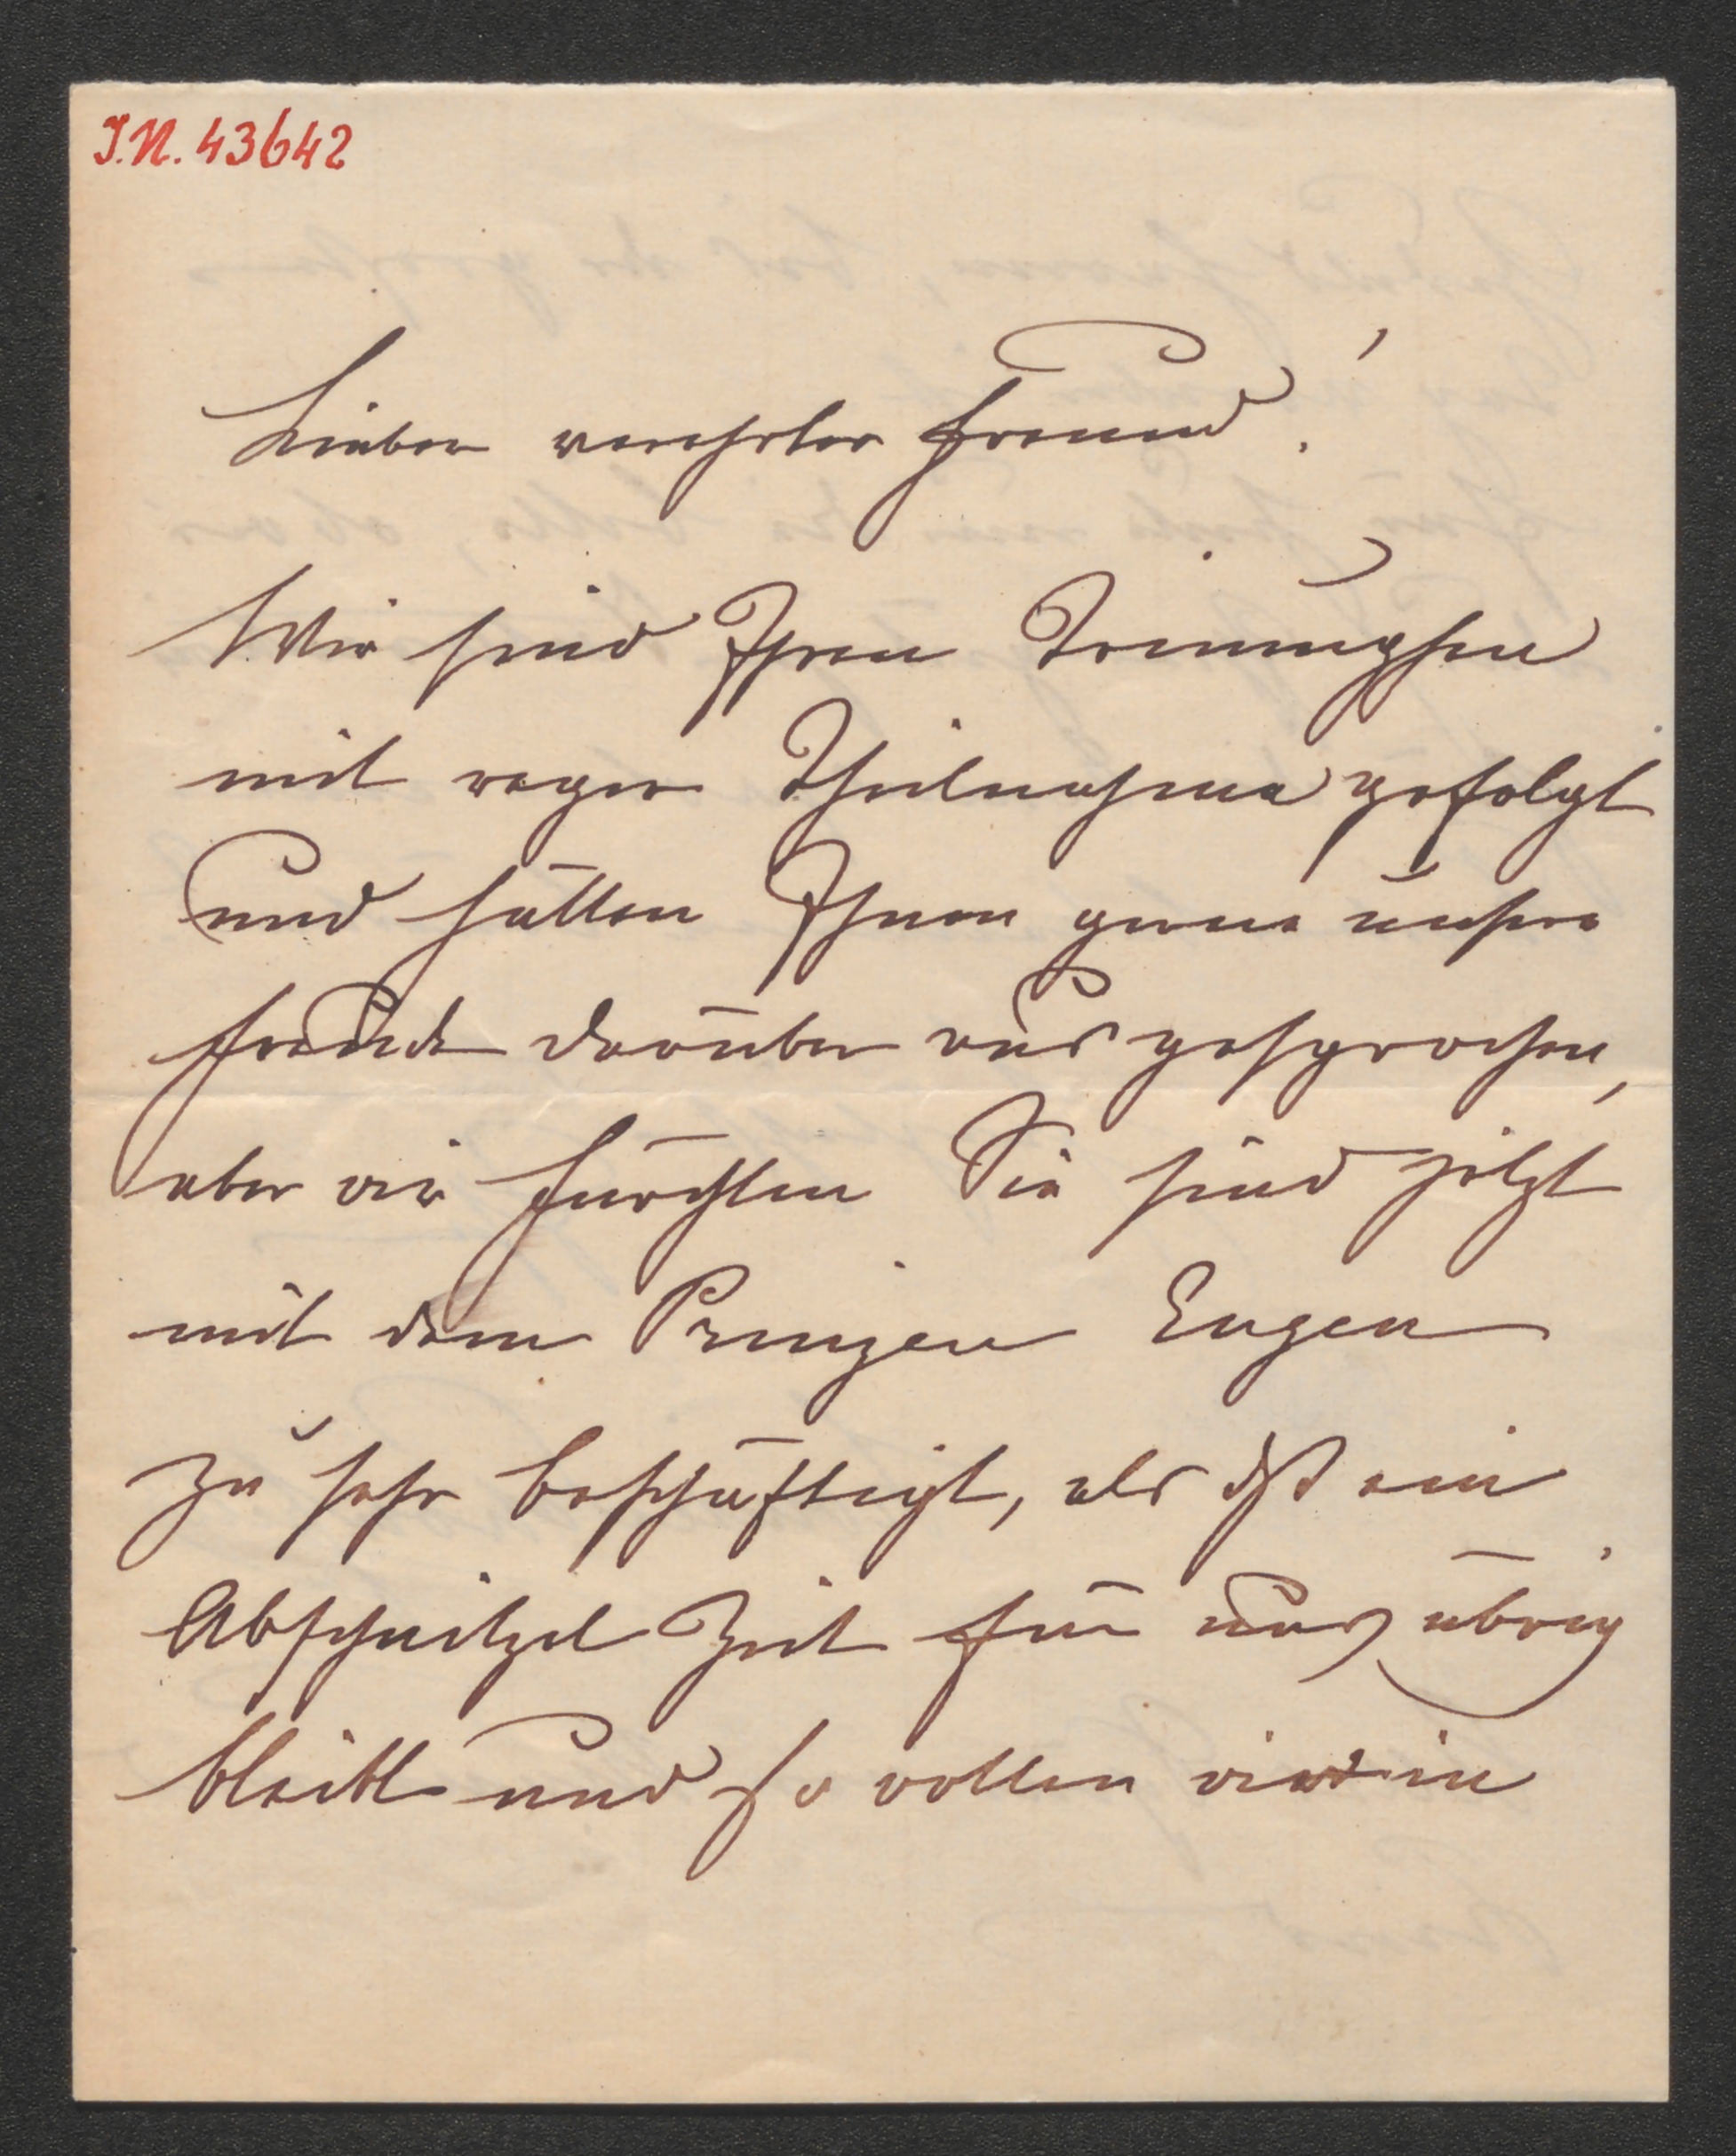 I.N. 43642
Lieber verehrter Freund!
Wir sind Ihren Triumphen
mit reger Theilnahme gefolgt
und hätten Ihnen gerne unsere
Freude darüber ausgesprochen,
aber wir fürchten Sie sind jetzt
mit dem Prinzen Eugen
zu sehr beschäftigt, als daß ein
Abschnitzel Zeit für uns übrig
bleibt und so wollen wir in